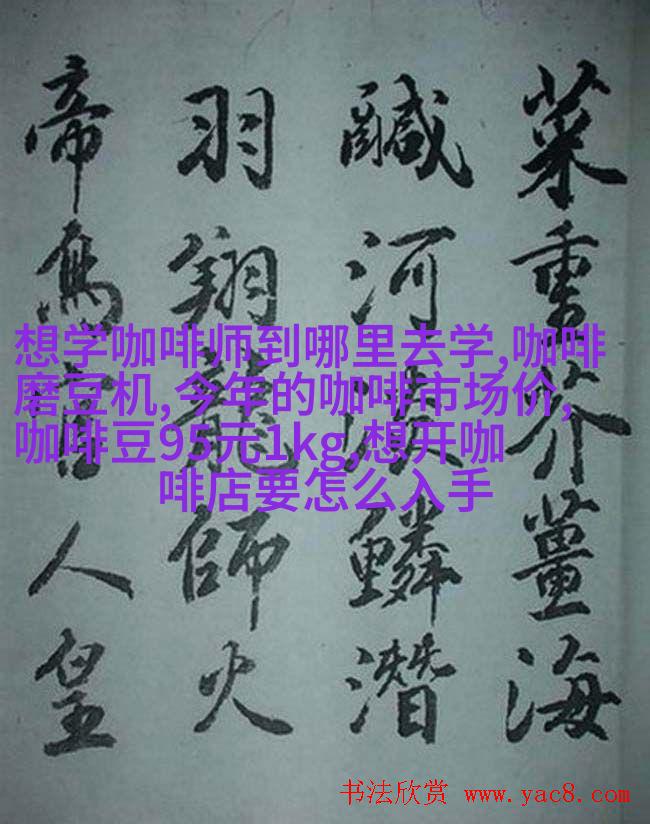 菜重芥薑海
鹹河淡鱗潛
羽翔龍師火
帝鳥官人皇
想学咖啡师到哪里去学,咖啡
磨豆机,今年的咖啡市场价,
咖啡豆95元1kg,想开咖
啡店要怎么入手
书法欣赏 www.yac8.com